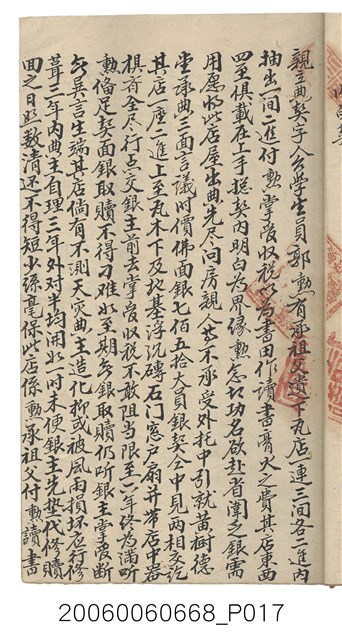 親立典契字人公學生員郭勲有承祖父遺下瓦店一連三間各二進內
抽出一間二進付勲掌管收稅以為書田作讀書膏火之費其店東西
四至俱載在上手契內明白為界緣勲急切功名欲赴省闈乏銀需
用愿將此店屋出典先尽问房親人等不承受外托中引就黃樹德
堂承典三面言議時價佛面銀七佰五拾大員銀契仝中見兩相交訖
其店一座二進上至瓦木下及地基浮沉磚石门窓戶扇并带店中器
俱首全尽行点交銀主前去掌管收稅不敢阻当限至六年終為滿听
勲俻足契面銀取贖不得刁难如至期無銀取贖仍听銀主掌管断
無異言生端其店倘有不測天灾典主造化抑或被風雨損坏应行修
葺三年内典主自理三年外对半均開如一时未便銀主先墊代修贖
回之日照数清还不得短少絲毫保此店係勲承祖父付勲讀書
20060060668_P017